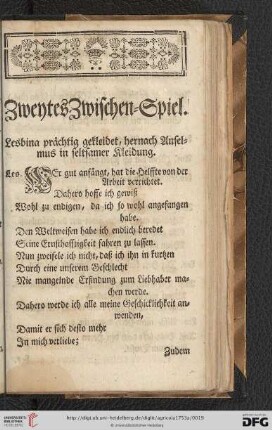 Zweytes Zwischen-Spiel.
Lesbina prächtig gekleidet, hernach Ansel-
mus in seltsamer Kleidung.
Les. WEr gut anfängt, hat die Helffte von der
Arbeit verrichtet.
Dahero hoffe ich gewiß
Wohl zu endigen, da ich so wohl angefangen
habe.
Den Weltweisen habe ich endlich beredet
Seine Ernsthafftigkeit fahren zu lassen.
Nun zweifele ich nicht, daß ich ihn in kurtzen
Durch eine unserem Geschlecht
Nie mangelnde Erfindung zum Liebhaber ma-
chen werde.
Dahero werde ich alle meine Geschicklichkeit an-
wenden,
Damit er sich desto mehr
In mich verliebe;
Zudem
UNIVERSITÄTS-
BIBLIOTHEK
HEIDELBERG
http://digi.ub.uni-heidelberg.de/diglit/agricola1751a/0019
© Universitätsbibliothek Heidelberg
Gefördert durch die
DFG